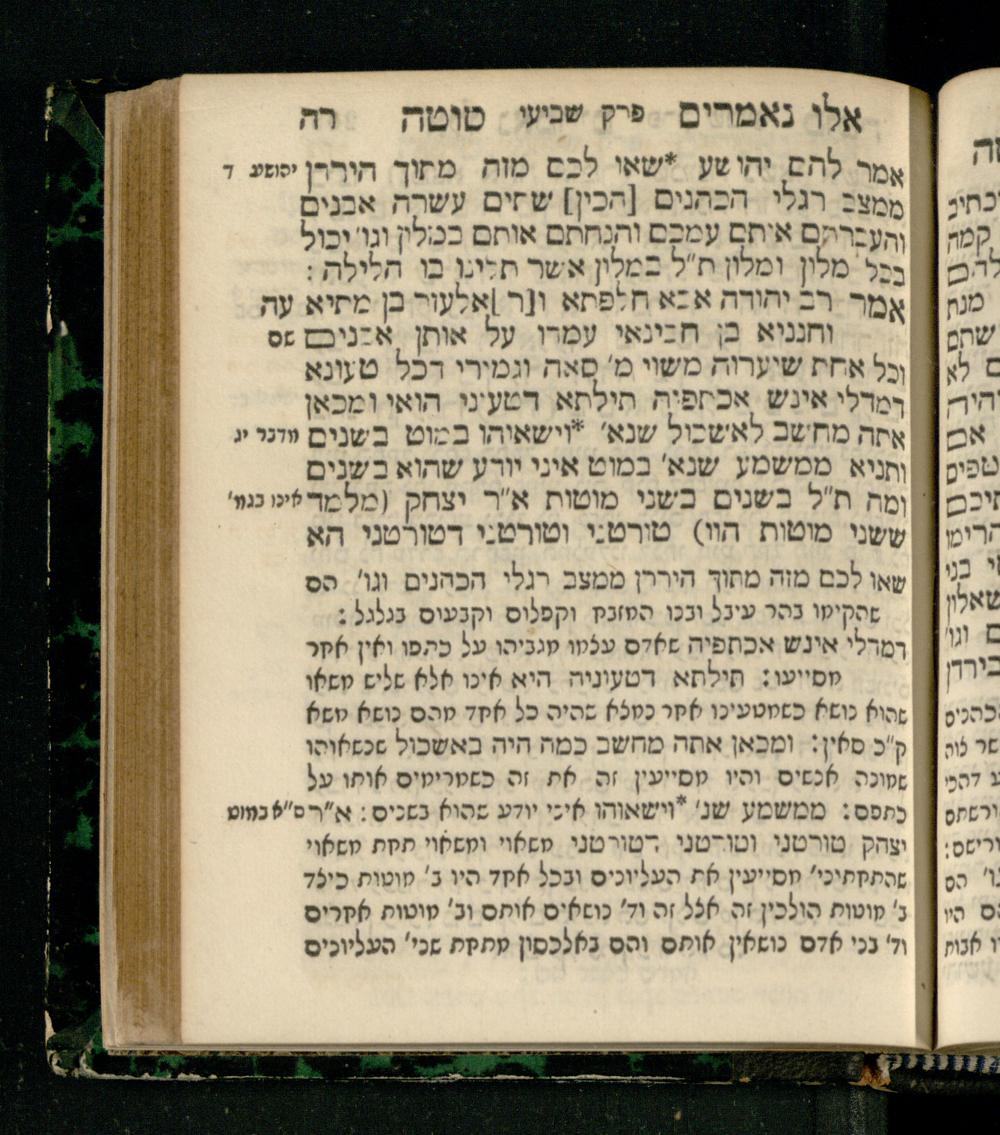 אלו נאמרים פרק שביעי סוטה רה
אמר להם יהושע *שאו לכם מזה מתוך הירדן יהושע ד
ממצב רגלי הכהנים [הכין] שתים עשרה אבנים
והעברתם אותם עמכם והנחתם אותם במלון וגו' יכול
בכל מלון ומלון ת"ל במלון אשר תלינו בו הלילה :
אמר רב יהודה אבא חלפתא ו[ר]אלעזר בן מתיא עה
וחנניא בן חכינאי עמדו על אותן אבנים שם
וכל אחת שיערוה משוי מ' סאה וגמירי דכל טעונא
דמדלי אינש אכתפיה תילתא דטעיני הואי ומכאן
אתה מחשב לאשכול שנא' *וישאוהו במוט בשנים מדבר יג
ותניא ממשמע שנא' במוט איני יודע שהוא בשנים
ומה ת"ל בשנים בשני מוטות א"ר יצחק (מלמד אינו בגמ'
ששני מוטות הוו) טורטני וטורטני דטורטני הא
שאו לכם מזה מתוך הירדן ממצב רגלי הכהנים וגו' הם
שהקימו בהר עיבל ובנו המזבח וקפלום וקבעום בגלגל :
דמדלי אינש אכתפיה שאדם עצמו מגביהו על כתפו ואין אחר
מסייעו : תילתא דטעוניה היא אינו אלא שליש משאו
שהוא נושא כשמטעינו אחר נמצא שהיה כל אחד מהם נושא משא
ק"כ סאין : ומכאן אתה מחשב כמה היה באשכול שנשאוהו
שמונה אנשים והיו מסייעין זה את זה כשמרימים אותו על
כתפם : ממשמע שנ' *וישאוהו איני יודע שהוא בשנים : א"ר ס"א במוט
יצחק טורטני וטורטני דטורטני משאוי ומשאוי תחת משאוי
שהתחתיני' מסייעין את העליונים ובכל אחד היו ב' מוטות כיצד
ב' מוטות הולכין זה אצל זה וד' נושאים אותם וב' מוטות אחרים
וד' בני אדם נושאין אותם והם באלכסון מתחת שני' העליונים